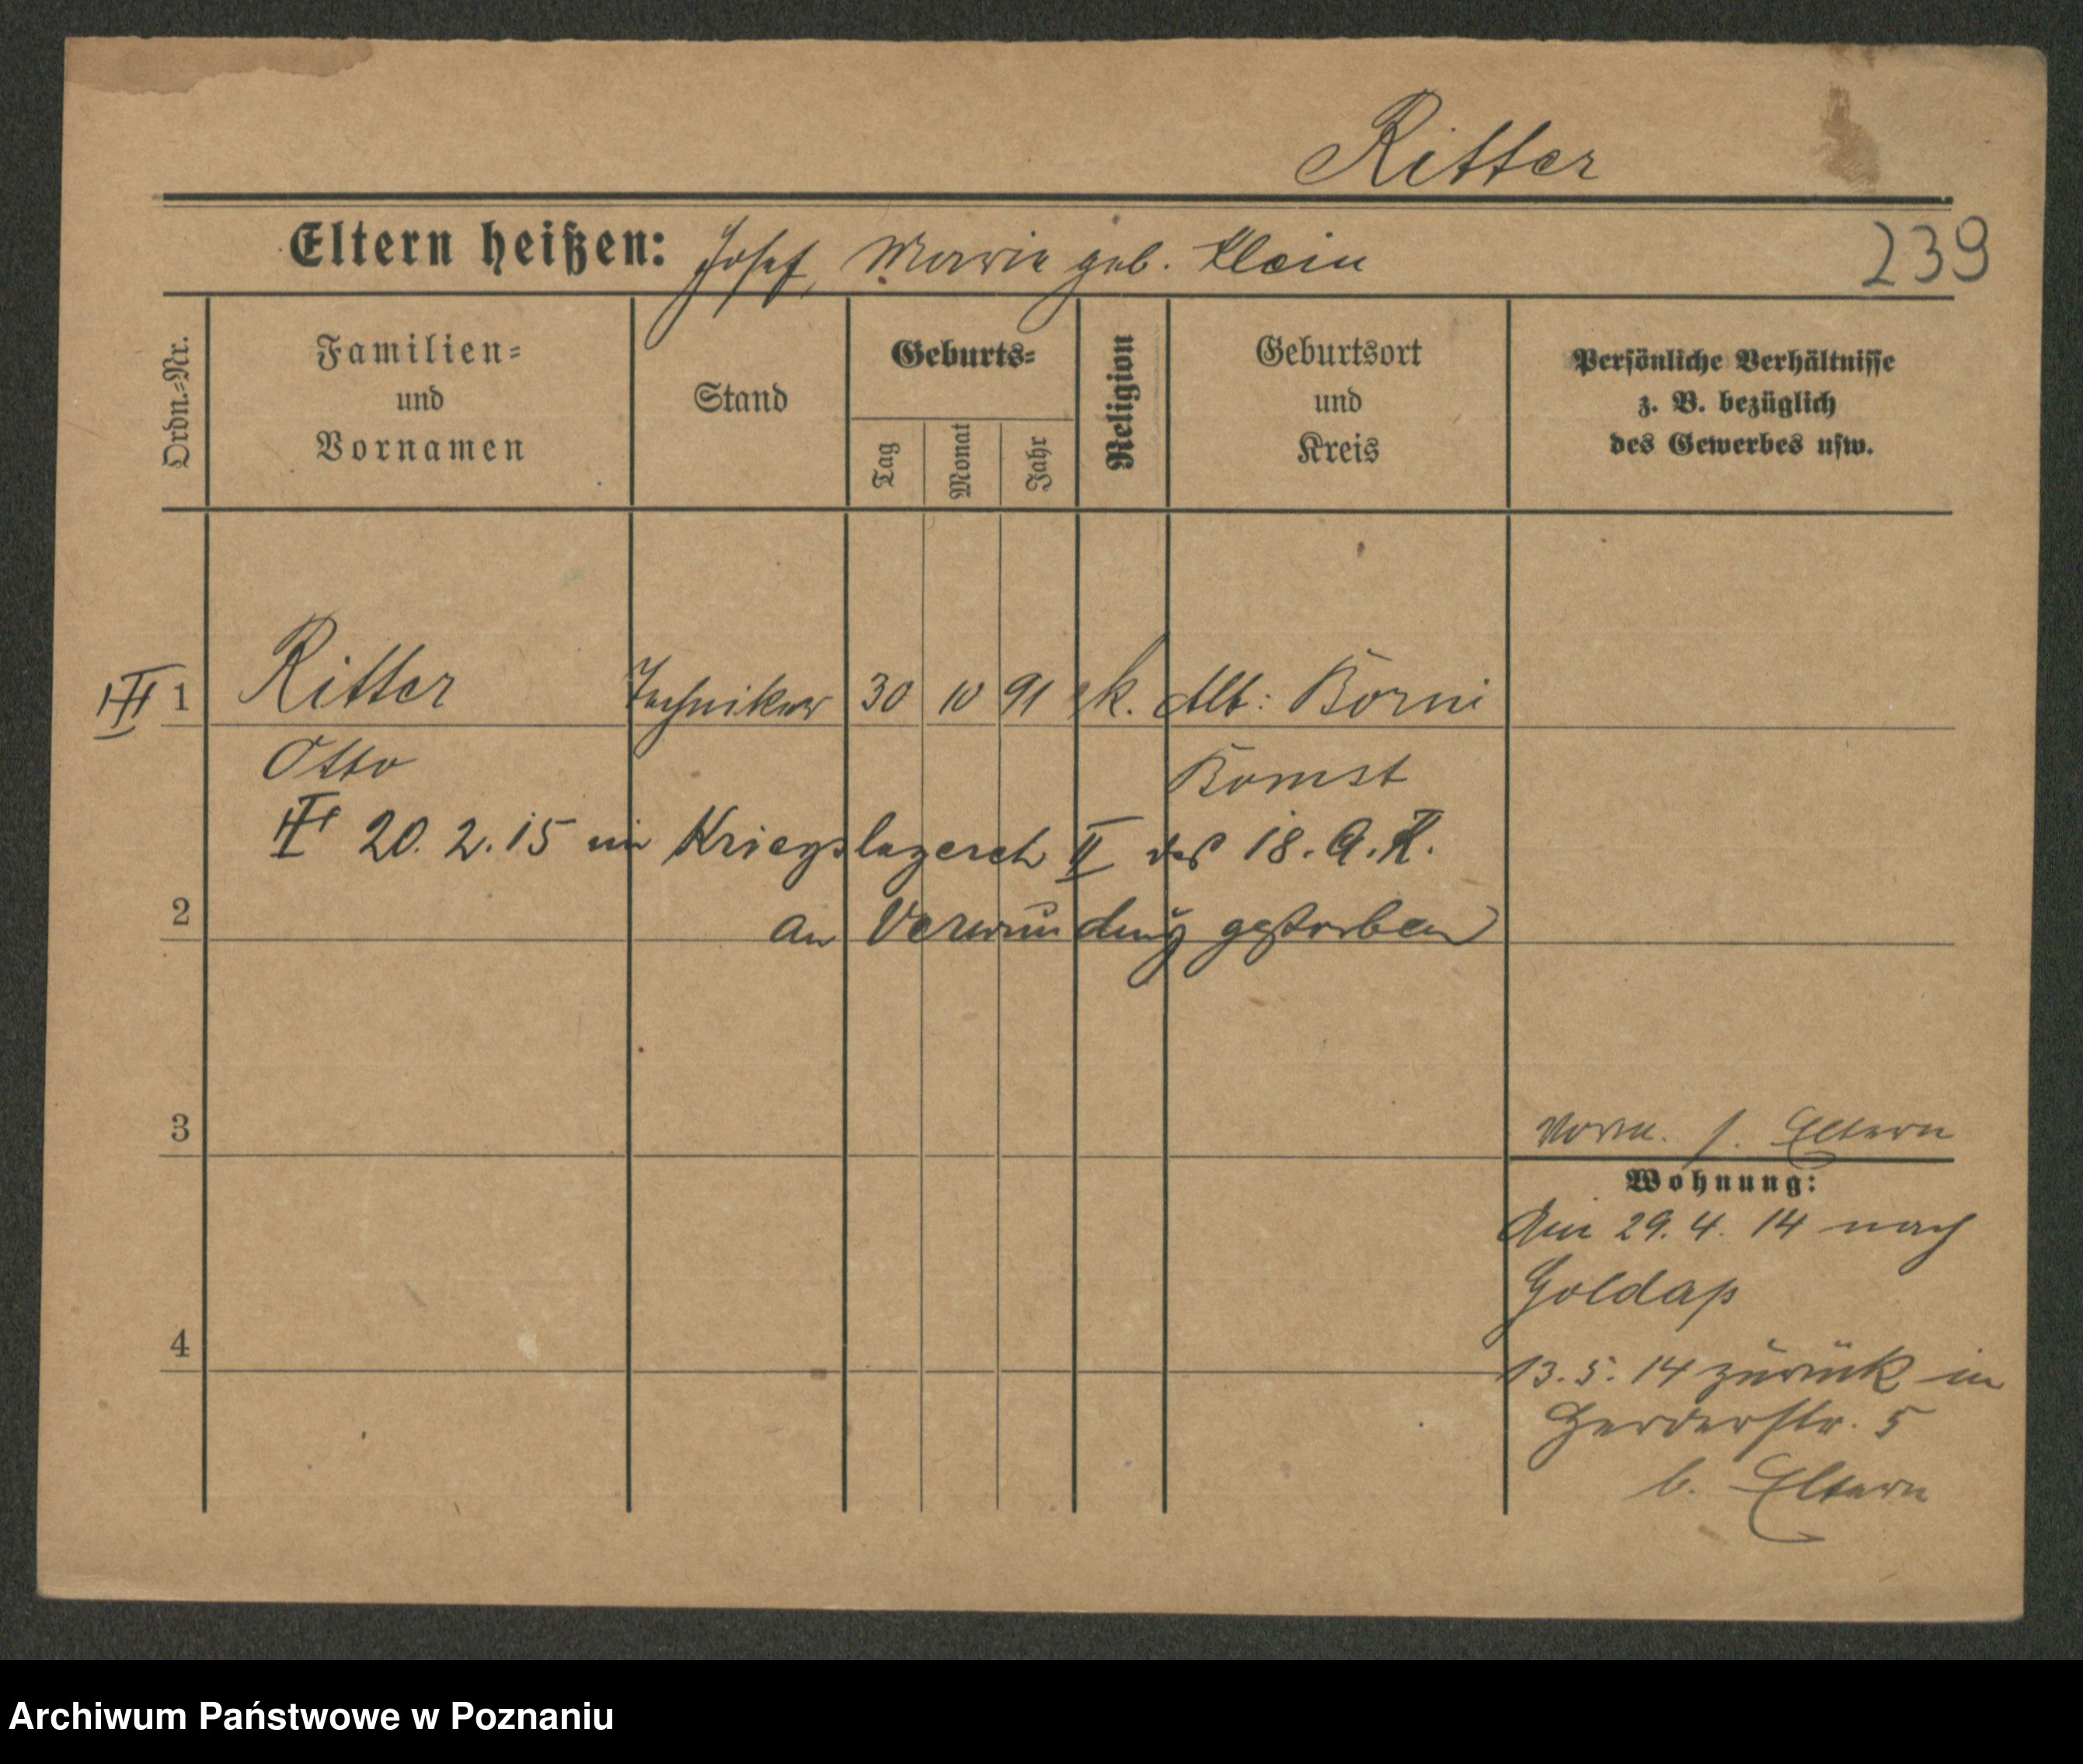 Ritter
239
Eltern heißen: Josef, Marie geb. Klein
Ordn.-Nr.
Familien-
und
Vornamen
Stand
Geburts-
Tag
Monat
Jahr
Religion
Geburtsort
und
Kreis
Persönliche Verhältnisse
z. B. bezüglich
des Gewerbes usw.
1 Ritter Techniker 30 10 91 k. Alt: Borui
Otto Bomst
20. 2. 15 im Kriegslazareth II des 18. A. K.
2 an Verwundung gestorben
3
Vorm. s. Eltern
Wohnung:
Am 29. 4. 14 nach
Goldap
4
13. 5. 14 zurück in
Herderstr. 5
b. Eltern
Archiwum Państwowe w Poznaniu